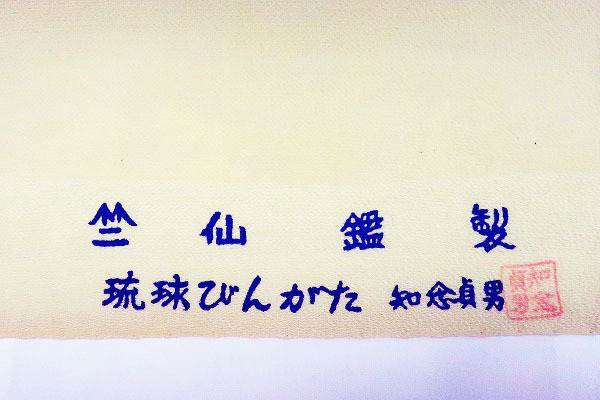 竺仙鑑製
琉球びんがた 知念貞男
知念
貞男